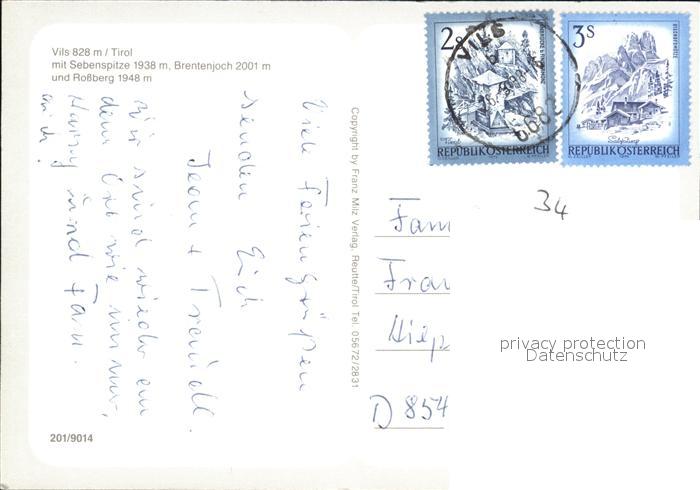 Vils 828 m / Tirol
mit Sebenspitze 1938 m, Brentenjoch 2001 m
und Roßberg 1948 m
Viele Feriengrüßen
senden Euch
Jean + Traudl.
Wir sind wieder am
dem Ort wie immer,
Harry und Fam.
auch!
Copyright by Franz Milz Verlag, Reutte/Tirol Tel. 05672/2831
201/9014
2s
REPUBLIK ÖSTERREICH
3s
REPUBLIK ÖSTERREICH
VILS
6682
34
Fam
Frau
Hiep
D 854
privacy protection
Datenschutz